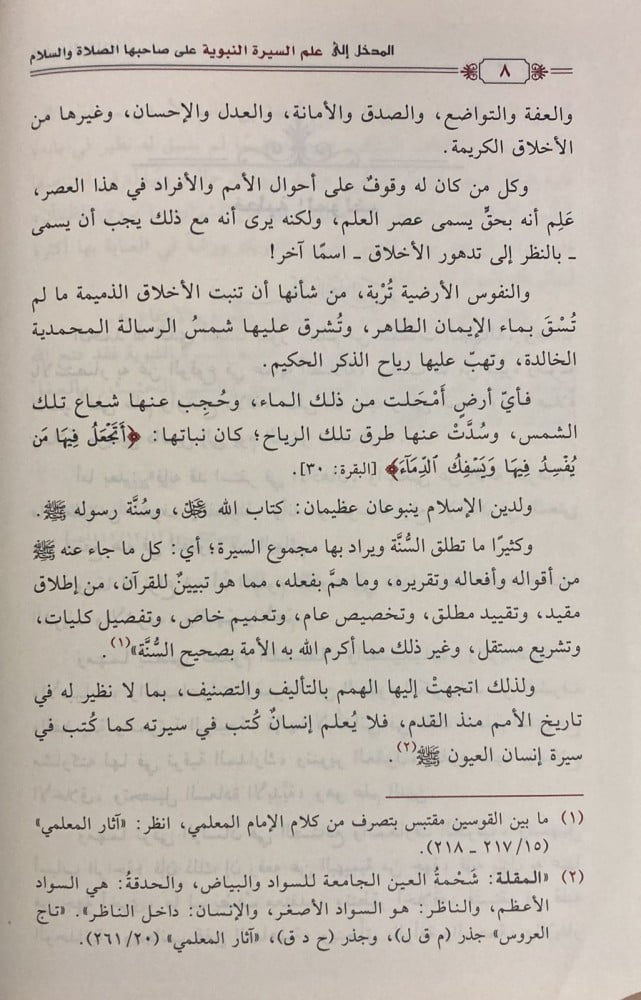 المدخل إلى علم السيرة النبوية على صاحبها الصلاة والسلام
٨
والعفة والتواضع، والصدق والأمانة، والعدل والإحسان، وغيرها من
الأخلاق الكريمة.
وكل من كان له وقوفٌ على أحوال الأمم والأفراد في هذا العصر،
عَلِم أنه بحقٍّ يسمى عصر العلم، ولكنه يرى أنه مع ذلك يجب أن يسمى
ـ بالنظر إلى تدهور الأخلاق ـ اسمًا آخر!
والنفوس الأرضية تُرْبة، من شأنها أن تنبت الأخلاق الذميمة ما لم
تُسْقَ بماء الإيمان الطاهر، وتُشرق عليها شمسُ الرسالة المحمدية
الخالدة، وتهبّ عليها رياح الذكر الحكيم.
فأيّ أرضٍ أَمْحَلت من ذلك الماء، وحُجِب عنها شعاع تلك
الشمس، وسُدَّتْ عنها طرق تلك الرياح؛ كان نباتها: ﴿أَتَجْعَلُ فِيهَا مَن
يُفْسِدُ فِيهَا وَيَسْفِكُ ٱلدِّمَآءَ﴾ [البقرة: ٣٠].
ولدين الإسلام ينبوعان عظيمان: كتاب الله ﷻ، وسُنَّة رسوله ﷺ.
وكثيرًا ما تطلق السُّنَّة ويراد بها مجموع السيرة؛ أي: كل ما جاء عنه ﷺ
من أقواله وأفعاله وتقريره، وما همَّ بفعله، مما هو تبيينٌ للقرآن، من إطلاق
مقيد، وتقييد مطلق، وتخصيص عام، وتعميم خاص، وتفصيل كليات،
وتشريع مستقل، وغير ذلك مما أكرم الله به الأمة بصحيح السُّنَّة»(١).
ولذلك اتجهتْ إليها الهمم بالتأليف والتصنيف، بما لا نظير له في
تاريخ الأمم منذ القدم، فلا يُعلم إنسانٌ كُتب في سيرته كما كُتب في
سيرة إنسان العيون ﷺ(٢).
(١) ما بين القوسين مقتبس بتصرف من كلام الإمام المعلمي، انظر: «آثار المعلمي»
(١٥/ ٢١٧ ـ ٢١٨).
(٢) «المقلة: شَحْمةُ العين الجامعة للسواد والبياض، والحدقةُ: هي السواد
الأعظم، والناظر: هو السواد الأصغر، والإنسان: داخل الناظر». «تاج
العروس» جذر (م ق ل)، وجذر (ح د ق)، «آثار المعلمي» (٢٠/ ٢٦١).